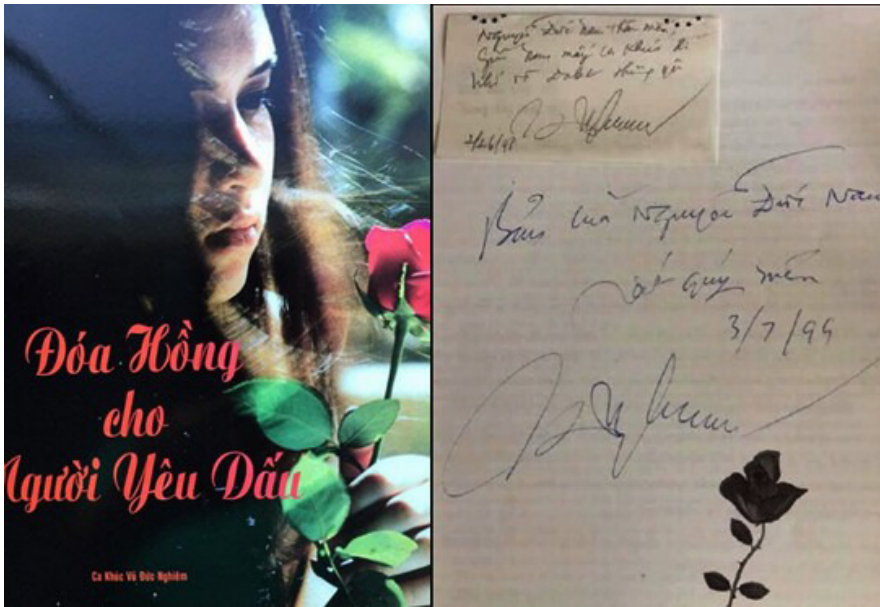 Đóa Hồng
cho
Người Yêu Dấu
Ca Khúc Vũ Đức Nghiệm
Nguyễn Đức Nam thân mến,
Gửi Nam mấy ca khúc
Dalat
Bản của Nguyễn Đức Nam
rất quý mến
3/7/99